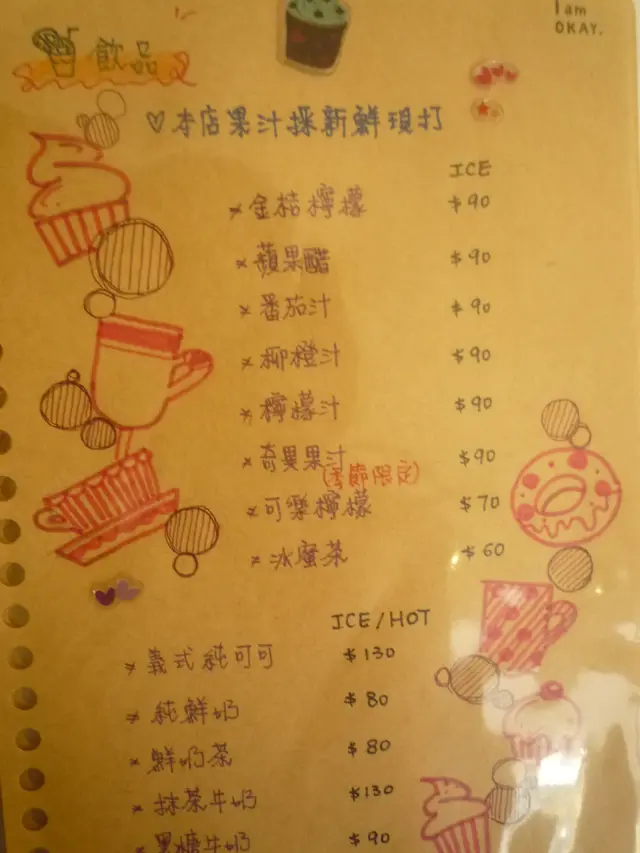 I am
OKAY.
飲品
♡本店果汁採新鮮現打
ICE
×金桔檸檬 $90
×蘋果醋 $90
×番茄汁 $90
×柳橙汁 $90
×檸檬汁 $90
×奇異果汁 $90
(季節限定)
×可樂檸檬 $70
×冰蜜茶 $60
ICE/HOT
×義式純可可 $130
×純鮮奶 $80
×鮮奶茶 $80
×抹茶牛奶 $130
×黑糖牛奶 $90